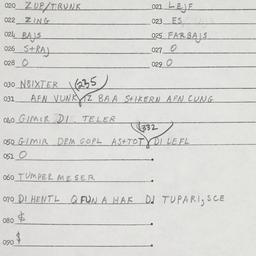 020 ZUP/TRUNK 021 LEJF
022 ZING 023 ES
024 BAJS 025 FARBAJS
026 S+RAJ 027 O
028 O 029 O
030 NBIXTER 235
031 AFN VUNK IZ BAA S+IKERN AFN CUNG
040 GIMIR DI TELER
332
050 GIMIR DEM GOPL AS+TOT DI LEFL
051 O
060 TUMPER MESER
070 DI HENTL Q FUN A HAK DJ TUPARI, SCE
080 $
090 $